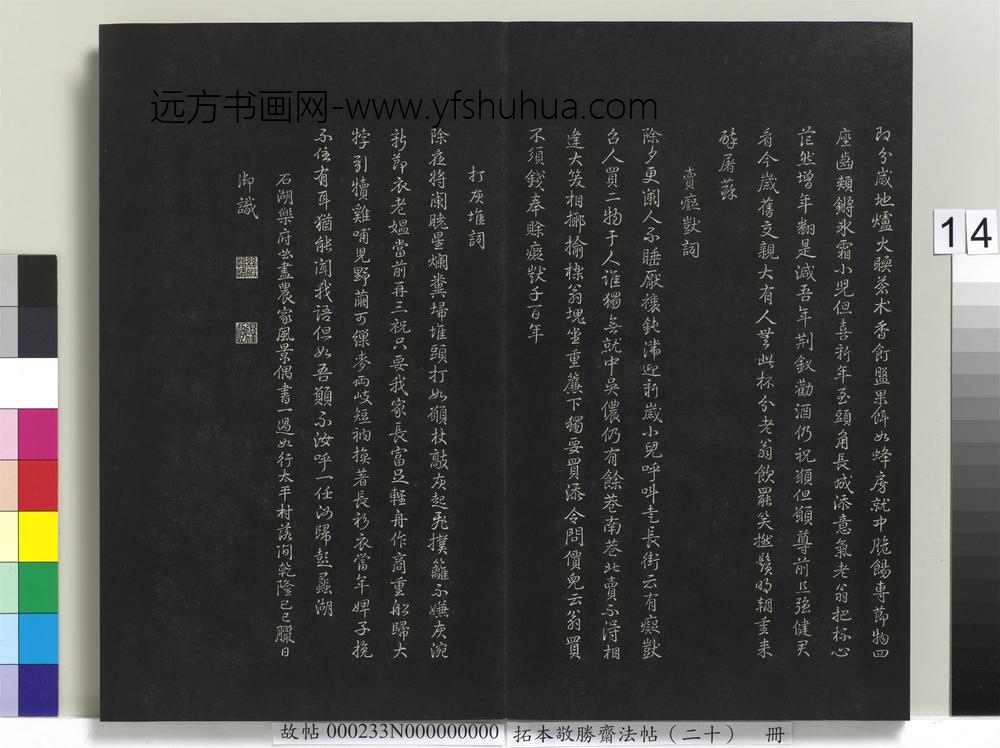 远方书画网-www.yfshuhua.com
即分歲地爐火暖蒼朮香飣盤果餌如蜂房就中脆餳專節物四
座齒頰鏘氷霜小兒但喜新年至頭角長成添意氣老翁把杯心
茫然增年翻是減吾年荊釵勸酒仍祝願但願尊前且強健君
看今歲舊交親大有人無此杯分老翁飲罷笑撚鬚明朝重來
醉屠蘇
賣癡獃詞
除夕更闌人不睡厭禳鈍滯迎新歲小兒呼叫走長街云有癡獃
召人買二物于人誰獨無就中吳儂仍有餘巷南巷北賣不得相
逢大笑相揶揄櫟翁塊坐重簾下獨要買添令問價兒云翁買
不須錢奉賒癡獃千百年
打灰堆詞
除夜將闌曉星爛糞掃堆頭打如願杖敲灰起飛撲籬不嫌灰涴
新節衣老媼當前再三祝只要我家長富足輕舟作商重船歸大
牸引犢雞哺兒野繭可繅麥兩岐短衲換著長衫衣當年婢子挽
不住有耳猶能聞我語但如吾願不汝呼一任汝歸彭蠡湖
石湖樂府出盡農家風景偶書一過如行太平村落間乾隆己巳臘日
御識
14
故帖 000233N000000000
拓本敬勝齋法帖（二十） 冊